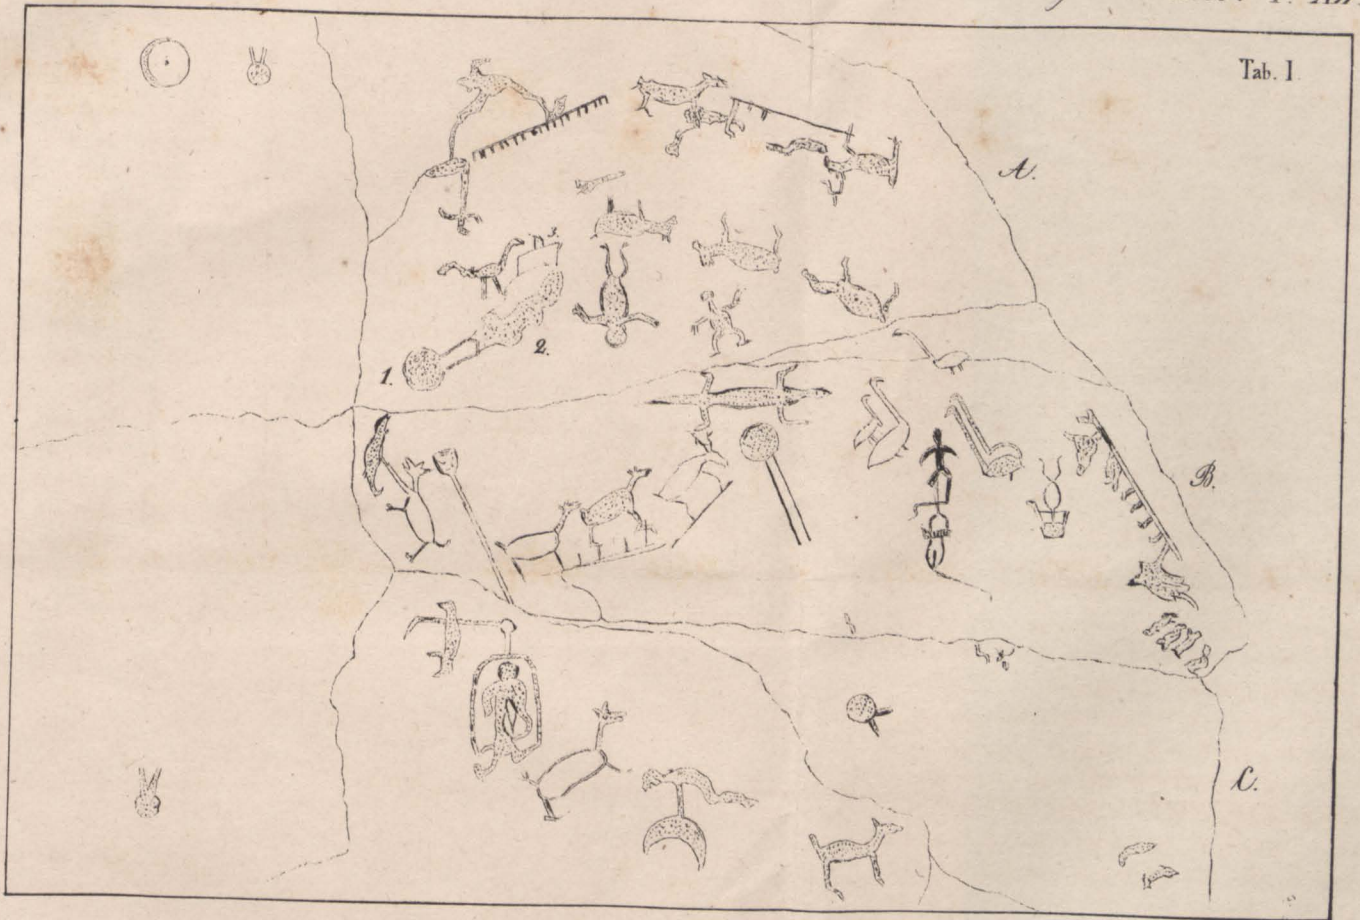 Tab. I
A.
3.
2.
1.
B.
C.